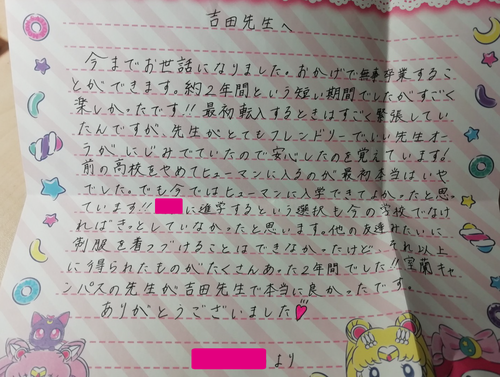 吉田先生へ
今までお世話になりました。おかげで無事卒業するこ
とができます。約2年間という短い期間でしたがすごく
楽しかったです!!最初転入するときはすごく緊張してい
たんですが、先生がとてもフレンドリーでいい先生オー
ラがにじみでていたので安心したのを覚えています!
前の高校をやめてヒューマンに入るのが最初本当はいや
でした。でも今ではヒューマンに入学できてよかったと思っ
ています!!
に進学するという選択も今の学校でなけ
ればきっとしていなかったと思います。他の友達みたいに
制服を着つづけることはできなかったけど、それ以上
に得られたものがたくさんあった2年間でした!!室蘭キャ
ンパスの先生が吉田先生で本当に良かったです。
ありがとうございました
より